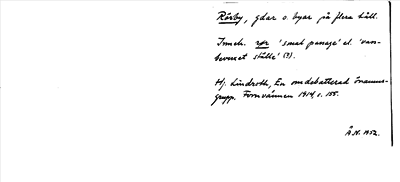 Rörby, gdar o. byar på flera håll.
Inneh. rør 'smal passage' el. 'vass-
bevuxet ställe' (?).
Hj. Lindroth, En omdebatterad önamns-
grupp. Fornvännen 1914, s. 155.
Å.N. 1952.